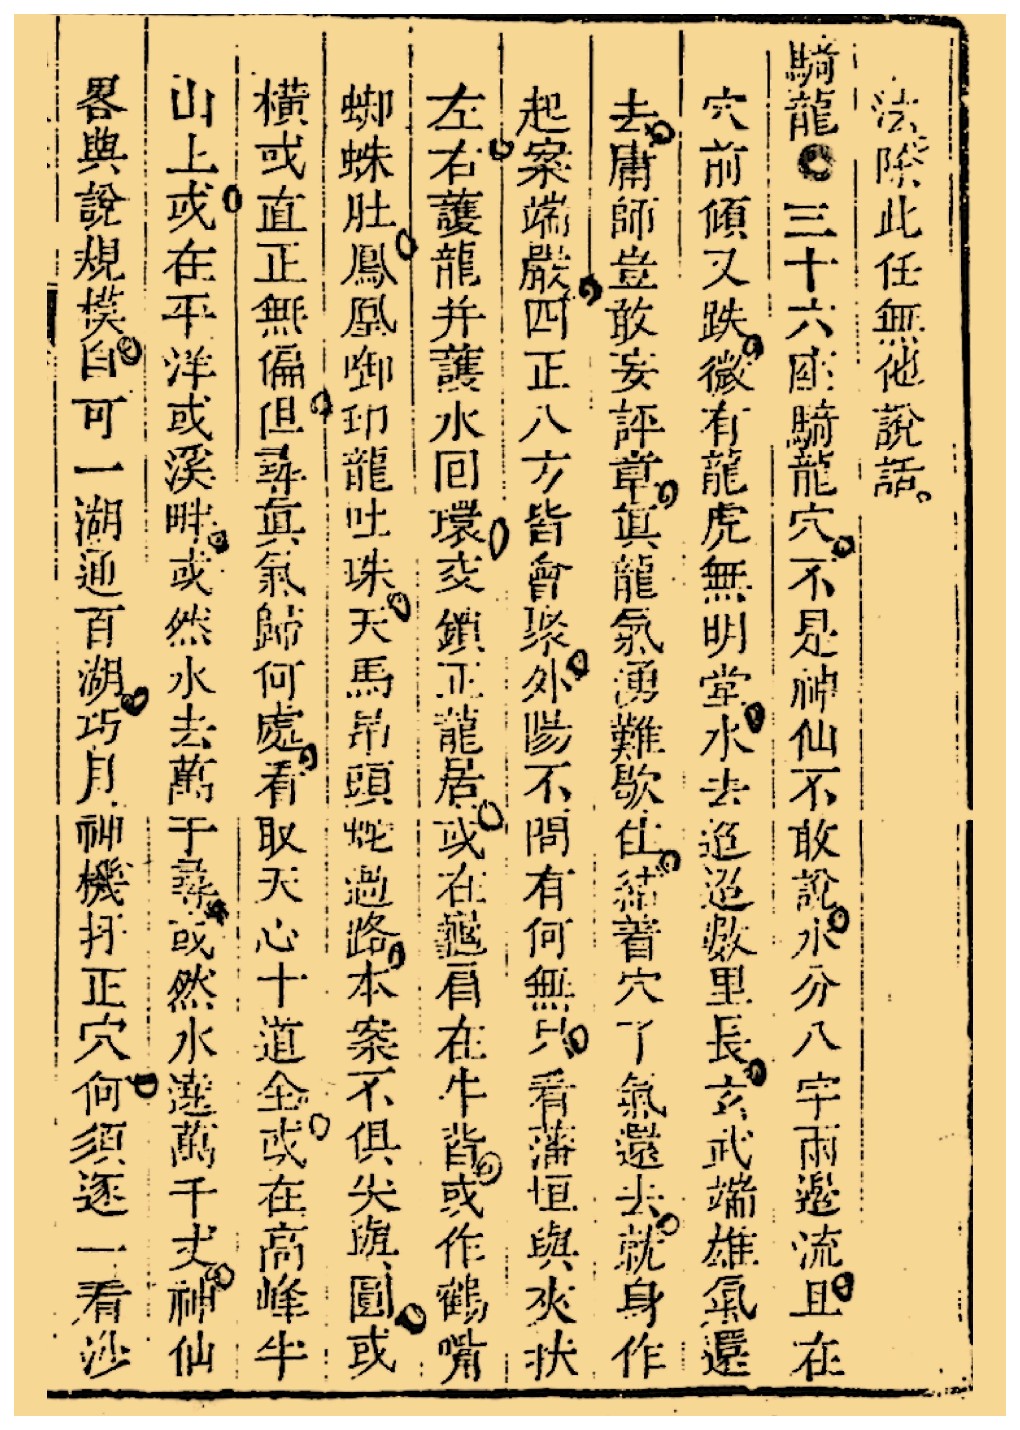 法除此任無他說話
騎龍 三十六座騎龍穴不是神仙不敢說水分八字兩邊流且在
穴前傾又跌微有龍虎無明堂水去迢迢數里長玄武端雄氣還
去庸師豈敢妄評章眞龍氣湧難歇住結著穴了氣還去就身作
起案端嚴四正八方皆會聚外陽不問有何無只看藩垣與夾扶
左右護龍并護水回環交鎖正龍居或在龜肩在牛背或作鶴嘴
蜘蛛肚鳳凰啣印龍吐珠天馬昂頭蛇過路本案不俱尖與圓或
橫或直正無偏但尋眞氣歸何處看取天心十道全或在高峰半
山上或在平洋或溪畔或然水去萬千尋或然水遶萬千丈神仙
畧與說規模自可一湖通百湖巧月神機扦正穴何須逐一看沙